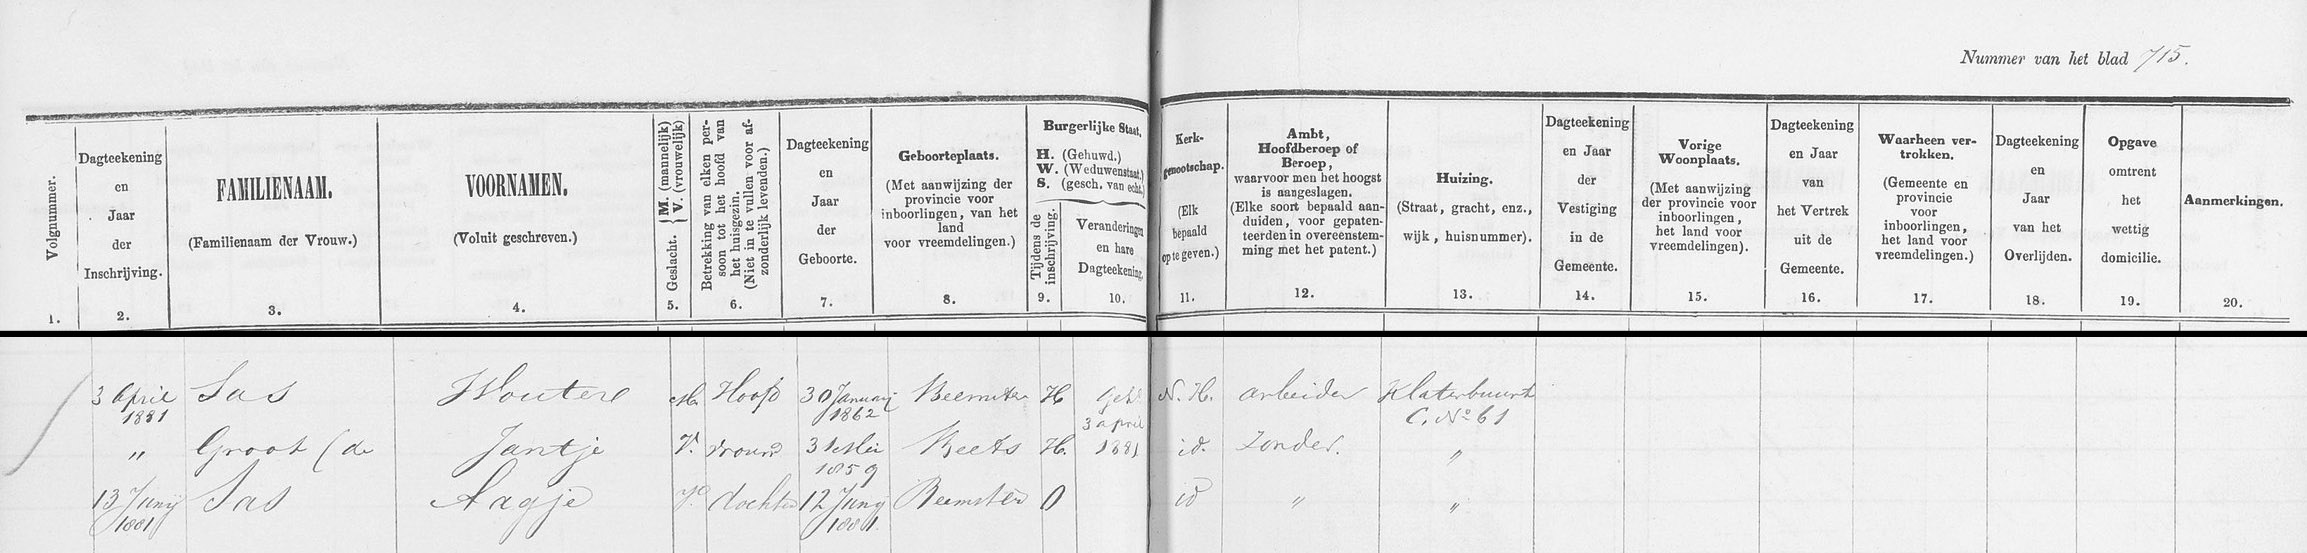 Nummer van het blad 715.
Volgnummer.
1.
Dagteekening
en
Jaar
der
Inschrijving.
2.
FAMILIENAAM.
(Familienaam der Vrouw.)
3.
VOORNAMEN.
(Voluit geschreven.)
4.
Geslacht. { M. (mannelijk) V. (vrouwelijk)
5.
Betrekking van elken per-
soon tot het hoofd van
het huisgezin.
(Niet in te vullen voor af-
zonderlijk levenden.)
6.
Dagteekening
en
Jaar
der
Geboorte.
7.
Geboorteplaats.
(Met aanwijzing der
provincie voor
inboorlingen, van het
land
voor vreemdelingen.)
8.
Burgerlijke Staat.
H. (Gehuwd.)
W. (Weduwenstaat.)
S. (gesch. van echt.)
Tijdens de
inschrijving.
9.
Veranderingen
en hare
Dagteekening.
10.
Kerk-
genootschap.
(Elk
bepaald
op te geven.)
11.
Ambt,
Hoofdberoep of
Beroep,
waarvoor men het hoogst
is aangeslagen.
(Elke soort bepaald aan-
duiden, voor gepaten-
teerden in overeenstem-
ming met het patent.)
12.
Huizing.
(Straat, gracht, enz.,
wijk, huisnummer).
13.
Dagteekening
en Jaar
der
Vestiging
in de
Gemeente.
14.
Vorige
Woonplaats.
(Met aanwijzing
der provincie voor
inboorlingen,
het land voor
vreemdelingen).
15.
Dagteekening
en Jaar
van
het Vertrek
uit de
Gemeente.
16.
Waarheen ver-
trokken.
(Gemeente en
provincie
voor
inboorlingen,
het land voor
vreemdelingen.)
17.
Dagteekening
en
Jaar
van het
Overlijden.
18.
Opgave
omtrent
het
wettig
domicilie.
19.
Aanmerkingen.
20.
3 April 1881 Sas Wouter M. Hoofd 30 Januarij 1862 Beemster H Geh. 3 april 1881 N. H. arbeider Klaterbuurt C. No 61
" Groot (de Jantje V. vrouw 31 Mei 1859 Beets H. id. Zonder. "
13 Junij 1881 Sas Aagje V. dochter 12 Junij 1881. Beemster O id " "